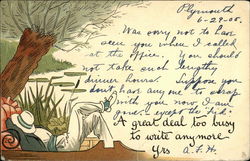 Plymouth
6-29-05.
Was sorry not to have
seen you when I called
at the office. You should
not take such lengthy
dinner hours. Suppose you
don't have any one to scrap
with you now I am
gone, except the "kid"
A great deal too busy
to write anymore
Yrs A.F.H.